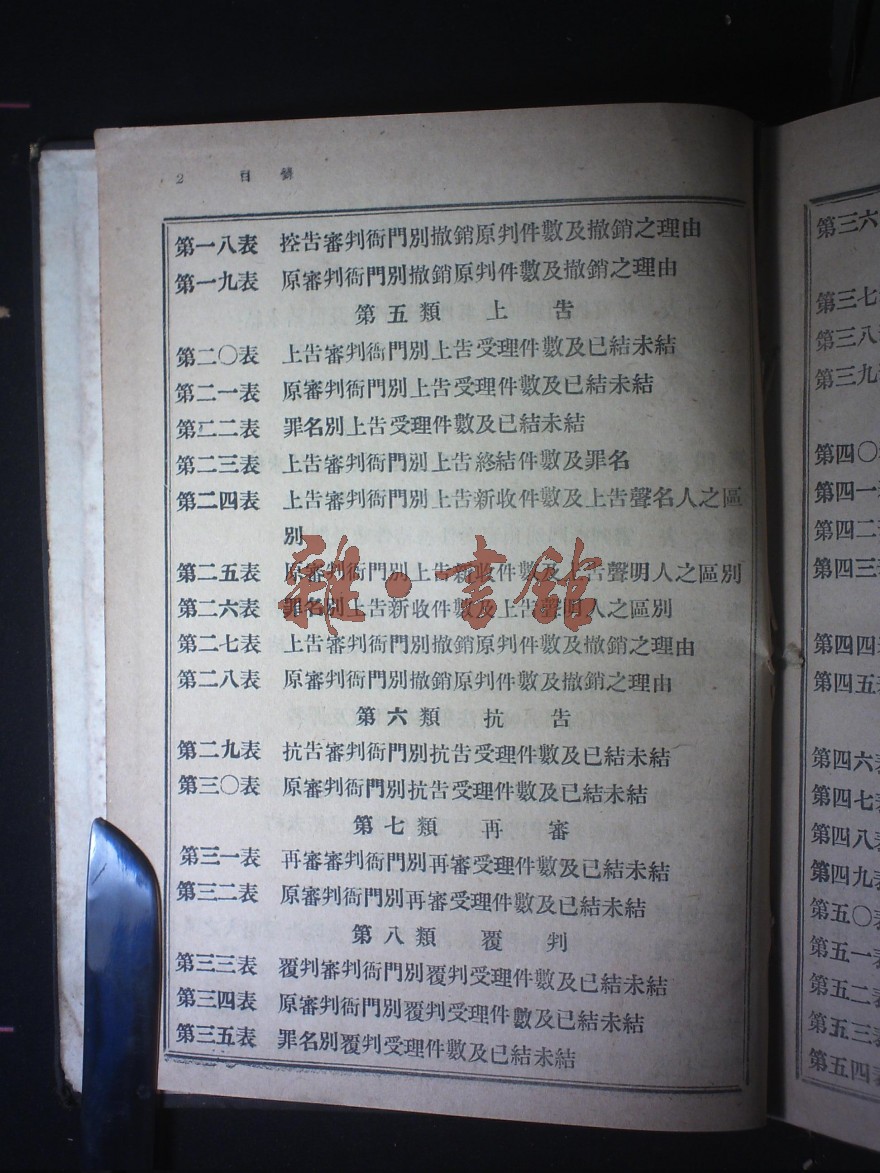 2 目錄
第一八表 控告審判衙門別撤銷原判件數及撤銷之理由
第一九表 原審判衙門別撤銷原判件數及撤銷之理由
第五類 上告
第二〇表 上告審判衙門別上告受理件數及已結未結
第二一表 原審判衙門別上告受理件數及已結未結
第二二表 罪名別上告受理件數及已結未結
第二三表 上告審判衙門別上告終結件數及罪名
第二四表 上告審判衙門別上告新收件數及上告聲名人之區
別
第二五表 原審判衙門別上告新收件數及上告聲明人之區別
第二六表 罪名別上告新收件數及上告聲明人之區別
第二七表 上告審判衙門別撤銷原判件數及撤銷之理由
第二八表 原審判衙門別撤銷原判件數及撤銷之理由
第六類 抗告
第二九表 抗告審判衙門別抗告受理件數及已結未結
第三〇表 原審判衙門別抗告受理件數及已結未結
第七類 再審
第三一表 再審審判衙門別再審受理件數及已結未結
第三二表 原審判衙門別再審受理件數及已結未結
第八類 覆判
第三三表 覆判審判衙門別覆判受理件數及已結未結
第三四表 原審判衙門別覆判受理件數及已結未結
第三五表 罪名別覆判受理件數及已結未結
雅·書館
第三六
第三七
第三八
第三九
第四〇
第四一
第四二
第四三
第四四
第四五
第四六表
第四七表
第四八表
第四九表
第五〇表
第五一表
第五二表
第五三表
第五四表